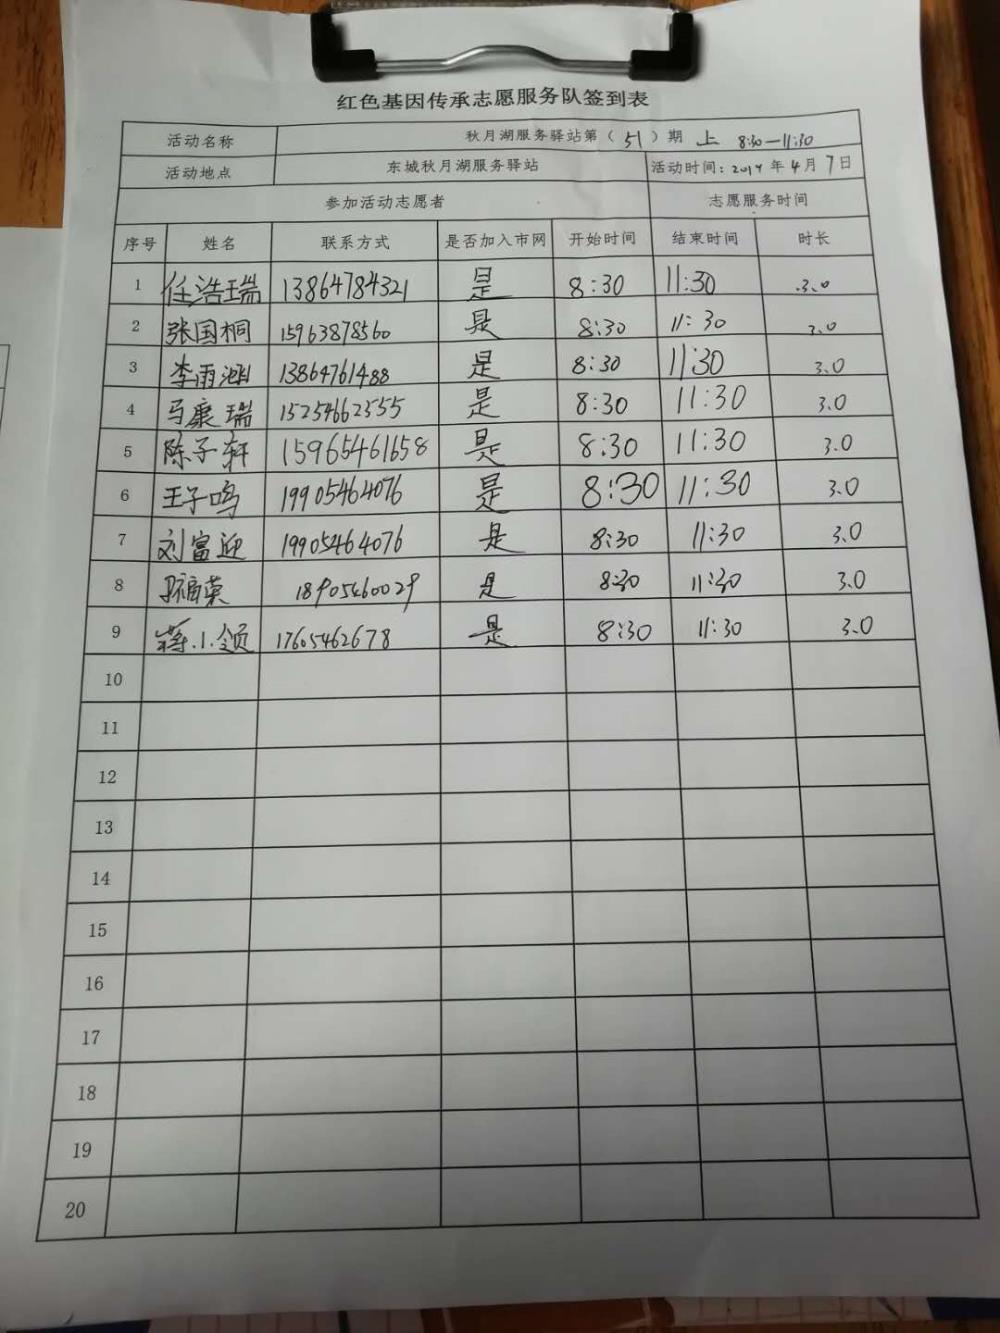 红色基因传承志愿服务队签到表
活动名称 秋月湖服务驿站第（51）期 上 8:30—11:30
活动地点 东城秋月湖服务驿站 活动时间：2019年4月7日
参加活动志愿者 志愿服务时间
序号 姓名 联系方式 是否加入市网 开始时间 结束时间 时长
1 任浩瑞 13864784321 是 8:30 11:30 3.0
2 张国桐 15963878560 是 8:30 11:30 3.0
3 李雨 13864761488 是 8:30 11:30 3.0
4 马康瑞 15254662555 是 8:30 11:30 3.0
5 陈子轩 15965461658 是 8:30 11:30 3.0
6 王子鸣 19905464076 是 8:30 11:30 3.0
7 刘富迎 19905464076 是 8:30 11:30 3.0
8 福英 18905460029 是 8:30 11:30 3.0
9 蒋小领 17605462678 是 8:30 11:30 3.0
10
11
12
13
14
15
16
17
18
19
20